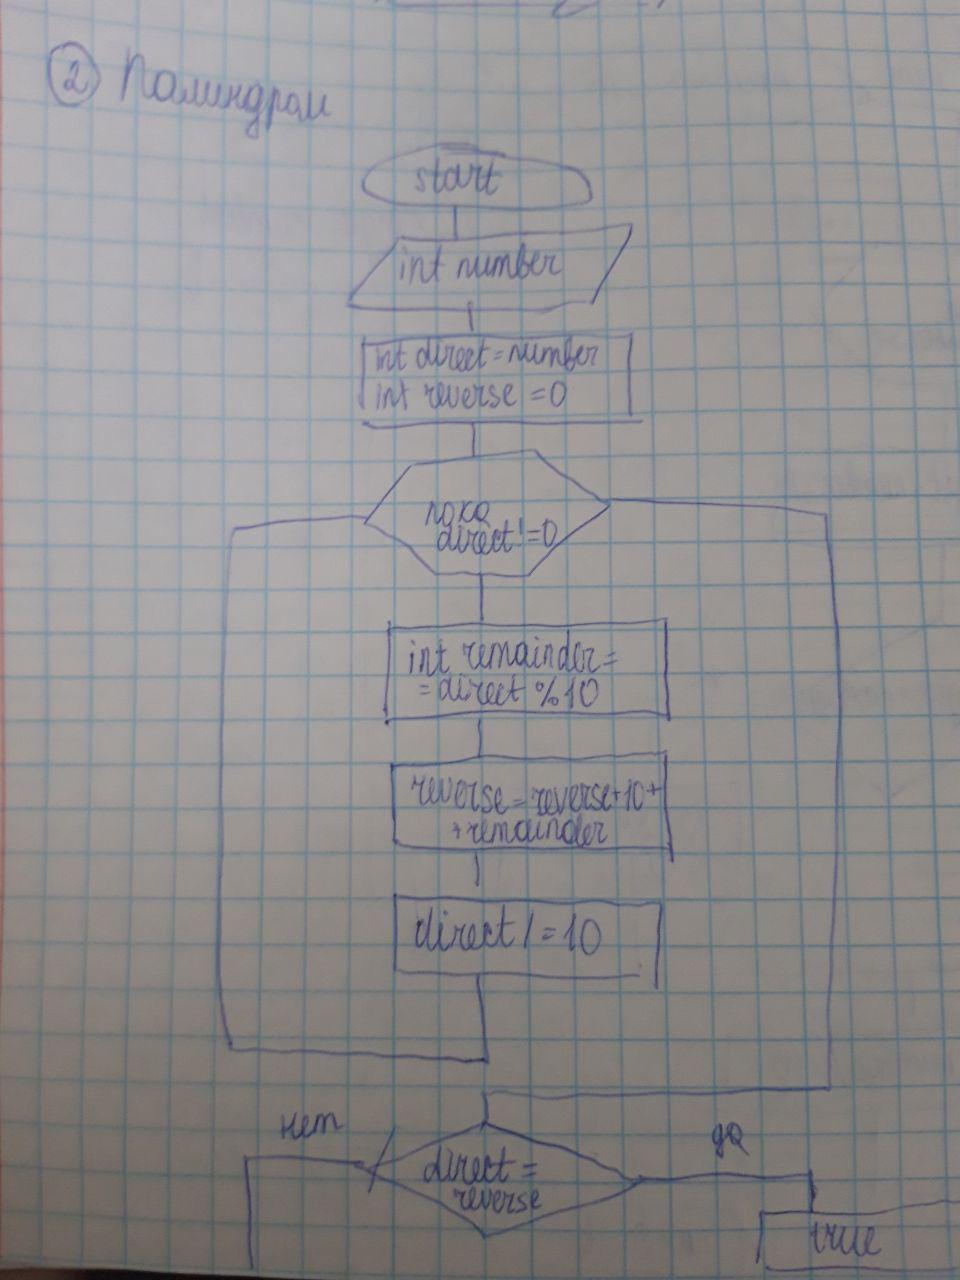 2 Палиндром
start
int number
int direct = number
int reverse = 0
пока
direct != 0
int remainder =
= direct % 10
reverse = reverse + 10 +
+ remainder
direct / = 10
нет
да
direct =
reverse
true